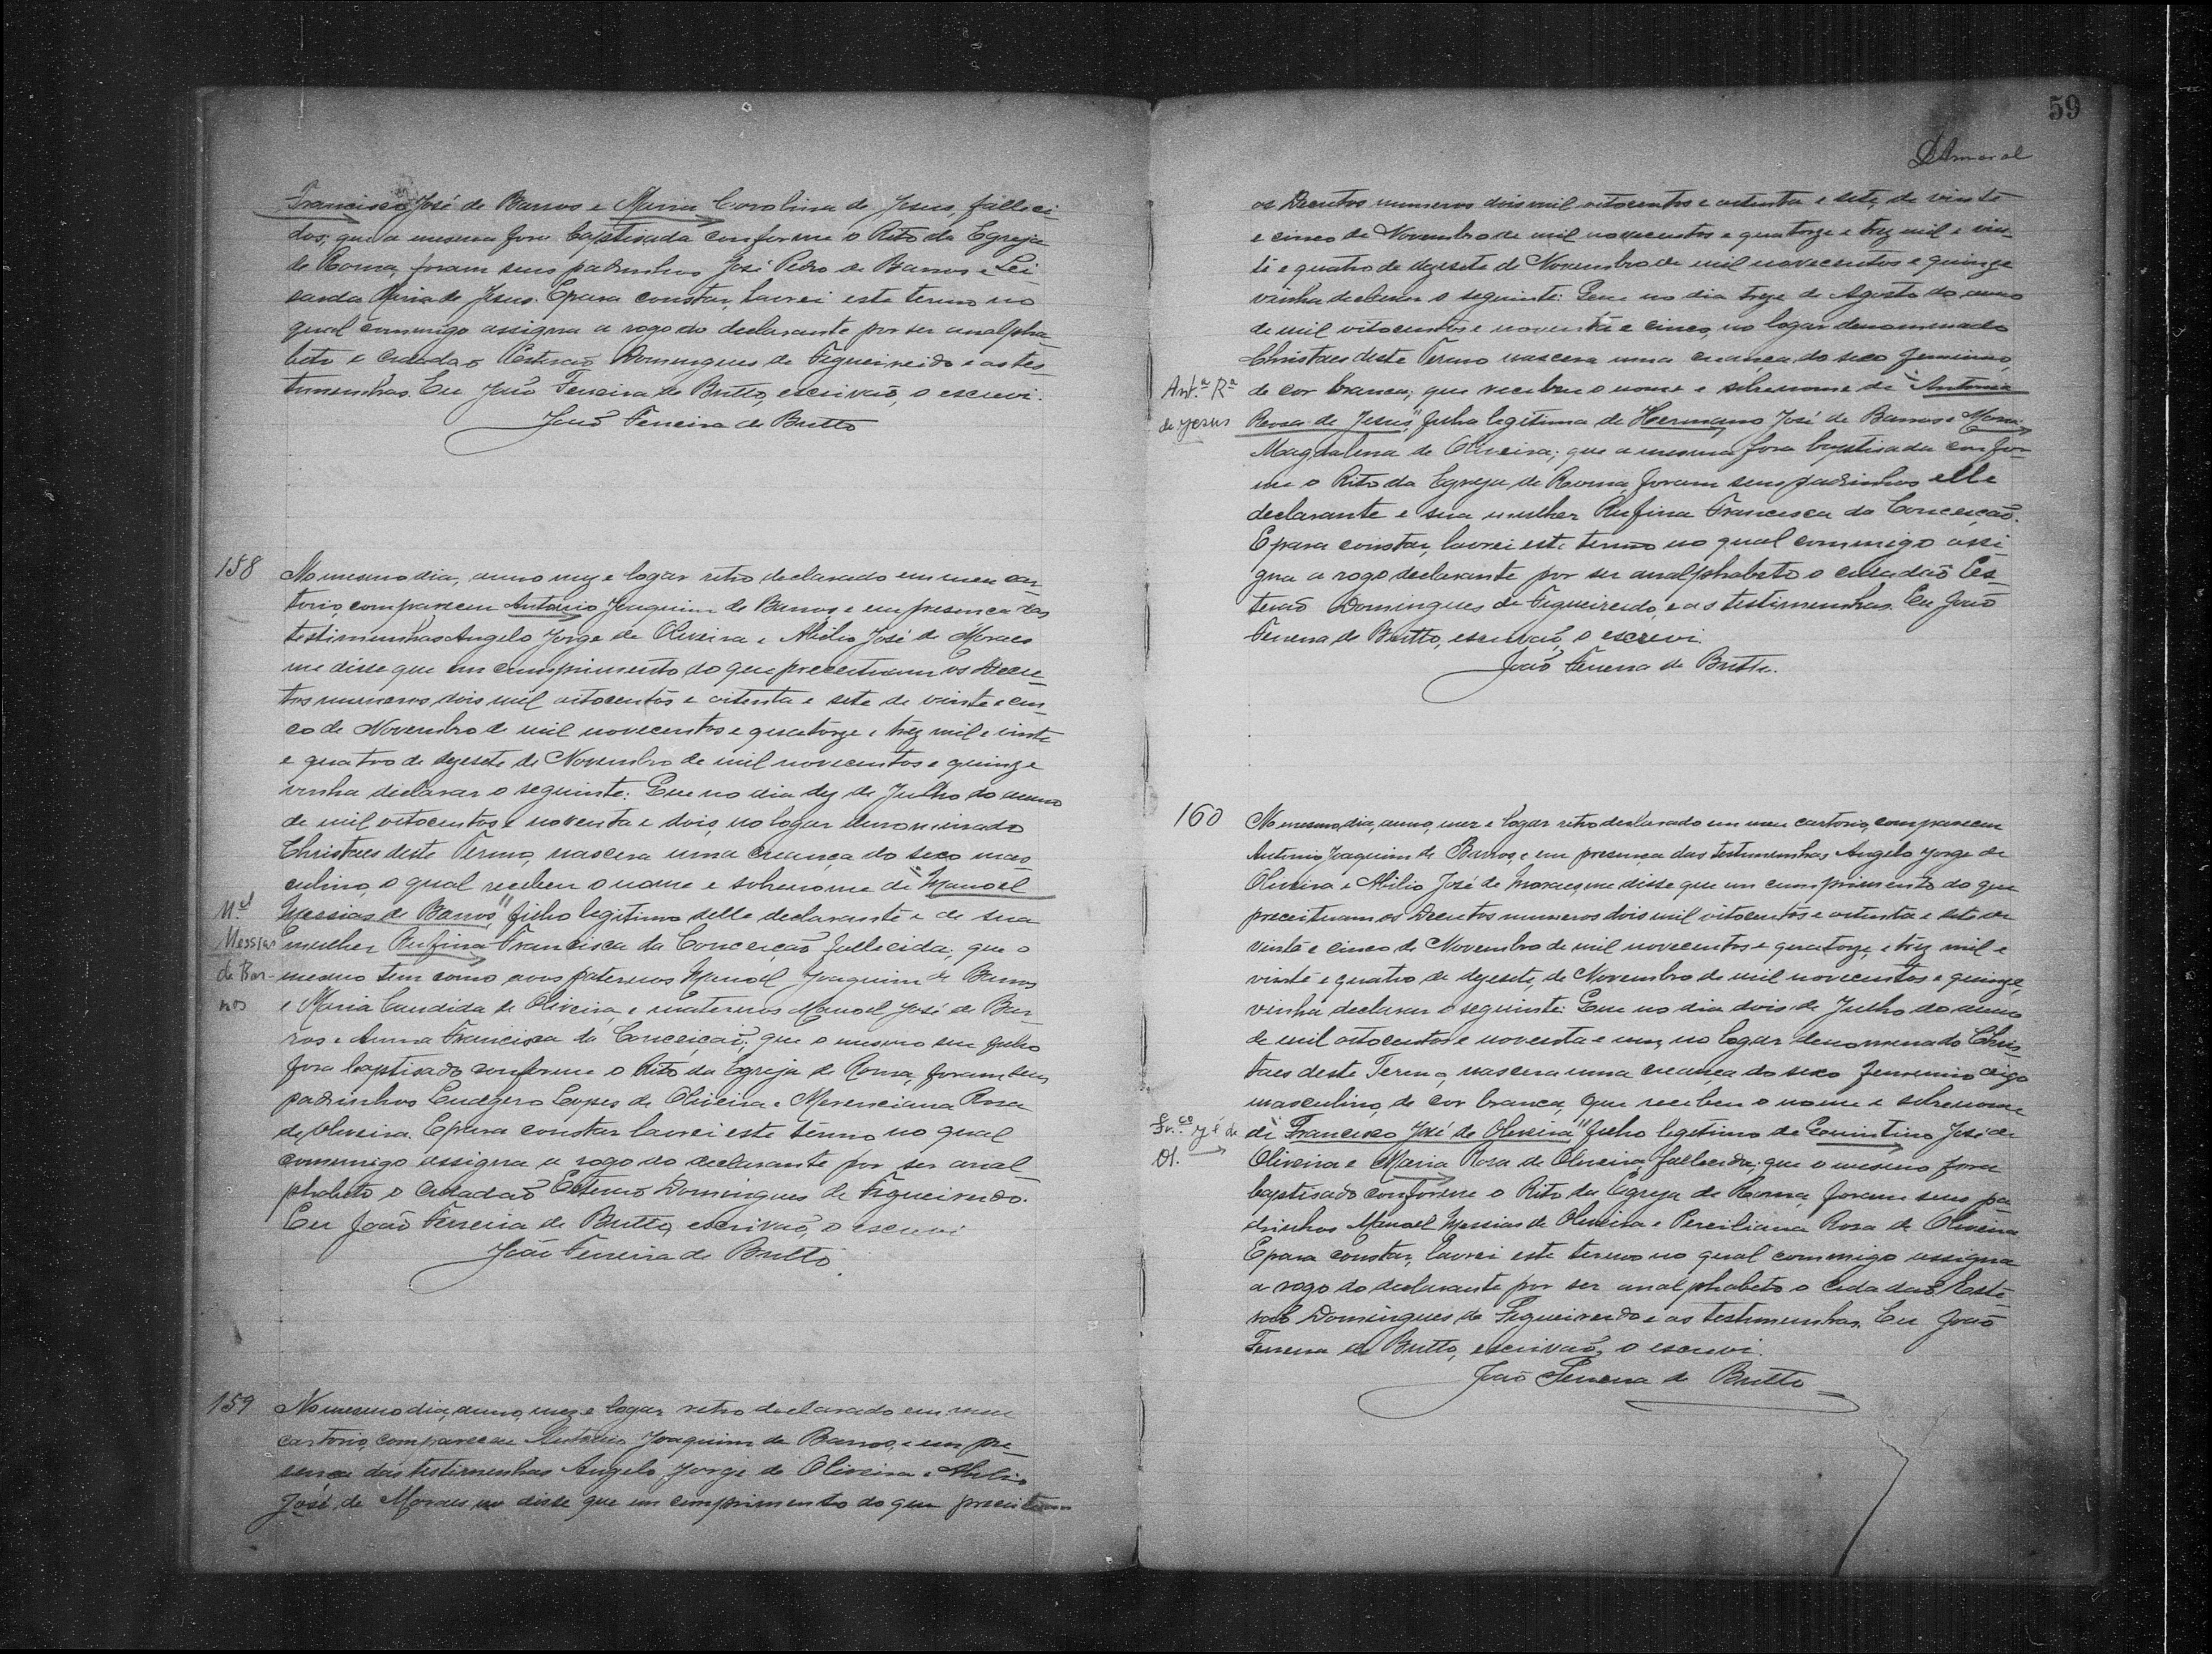 Francisco José de Barros e Maria Carolina de Jesus, falleci-
dos; que a mesma fora baptisada conforme o Rito da Egreja
de Roma, foram seus padrinhos José Pedro de Barros e Lei-
sarda Maria de Jesus. E para constar, lavrei este termo no
qual commigo assigna a rogo do declarante por ser analpha-
beto o cidadão Estevão Domingues de Figueireido e as tes-
timunhas. Eu João Ferreira de Britto, escrivão, o escrevi.
João Ferreira de Britto
158 No mesmo dia, anno mez e logar retro declarado em meu car-
torio compareceu Antonio Joaquim de Barros e em presença das
testimunhas Angelo Jorge de Oliveira e Abilio José de Moraes
me disse que em cumprimento do que preceituam os Decre-
tos numeros dois mil oitocentos e oitenta e sete de vinte e cin-
co de Novembro de mil novecentos e quatorze e trez mil e vinte
e quatro de dezesete de Novembro de mil novecentos e quinze
vinha declarar o seguinte: Que no dia dez de Julho do anno
de mil oitocentos e noventa e dois, no logar denominado
Christaes deste Termo, nascera uma creança do sexo mas-
culino, o qual recebeu o nome e sobrenome de "Manoel
Mel Messias de Barros" filho legitimo delle declarante e de sua
Messias mulher Rufina Francisca da Conceição, fallecida; que o
de Bar- mesmo tem como avos paternos Manoel Joaquim de Barros
ros e Maria Candida de Oliveira, e maternos Manoel José de Bar-
ros e Anna Francisca da Conceição; que o mesmo seu filho
fora baptisado conforme o Rito da Egreja de Roma, foram seus
padrinhos Ludgero Lopes de Oliveira e Merenciana Rosa
de Oliveira. E para constar lavrei este termo no qual
commigo assigna a rogo do declarante por ser anal-
phabeto o cidadão Estevão Domingues de Figueireido.
Eu João Ferreira de Britto, escrivão, o escrevi
João Ferreira de Britto.
159 No mesmo dia, anno, mez e logar retro declarado em meu
cartorio, compareceu Antonio Joaquim de Barros, e em pre-
sença das testimunhas Angelo Jorge de Oliveira e Abilio
José de Moraes me disse que em comprimento do que preceituam
59
Amaral
os Decretos numeros dois mil oitocentos e oitenta e sete, de vinte
e cinco de Novembro de mil novecentos e quatorze e trez mil e vin-
te e quatro de dezesete de Novembro de mil novecentos e quinze
vinha declarar o seguinte: Que no dia treze de Agosto do anno
de mil oitocentos e noventa e cinco, no logar denominado
Christaes deste Termo nascera uma creança do sexo feminino,
Anta. Ra de cor branca; que recebeu o nome e sobrenome de "Antonia
de Jesus Rosa de Jesus", filha legitima de Hermano José de Barros e Maria
Magdalena de Oliveira; que a mesma fora baptisada confor-
me o Rito da Egreja de Roma, foram seus padrinhos elle
declarante e sua mulher Rufina Francisca da Conceição.
E para constar, lavrei este termo no qual commigo assi-
gna a rogo declarante por ser analphabeto o cidadão Es-
tevão Domingues de Figueireido, e as testimunhas. Eu João
Ferreira de Britto, escrivão, o escrevi.
João Ferreira de Britto.
160 No mesmo, dia, anno, mez e logar retro declarado em meu cartorio, compareceu
Antonio Joaquim de Barros, e em presença das testimunhas Angelo Jorge de
Oliveira e Abilio José de Moraes, me disse que em cumprimento do que
preceituam os Decretos numeros dois mil oitocentos e oitenta e sete de
vinte e cinco de Novembro de mil novecentos e quatorze, e trez mil e
vinte e quatro de dezesete, de Novembro de mil novecentos e quinze,
vinha declarar o seguinte: Que no dia dois de Julho do anno
de mil oitocentos e noventa e um, no logar denominado Chris-
taes deste Termo, nascera uma creança do sexo feminino digo
masculino, de cor branca, que recebeu o nome e sobrenome
Frco Jé de de "Francisco José de Oliveira" filho legitimo de Quintino José de
Ol. Oliveira e Maria Rosa de Oliveira, fallecida; que o mesmo fora
baptisado conforme o Rito da Egreja de Roma, foram seus pa-
drinhos Manoel Messias de Oliveira e Perciliana Rosa de Oliveira
E para constar, lavrei este termo no qual commigo assigna
a rogo do declarante por ser analphabeto o cidadão Este-
vão Domingues de Figueireido e as testimunhas. Eu João
Ferreira de Britto, escrivão, o escrevi.
João Ferreira de Britto